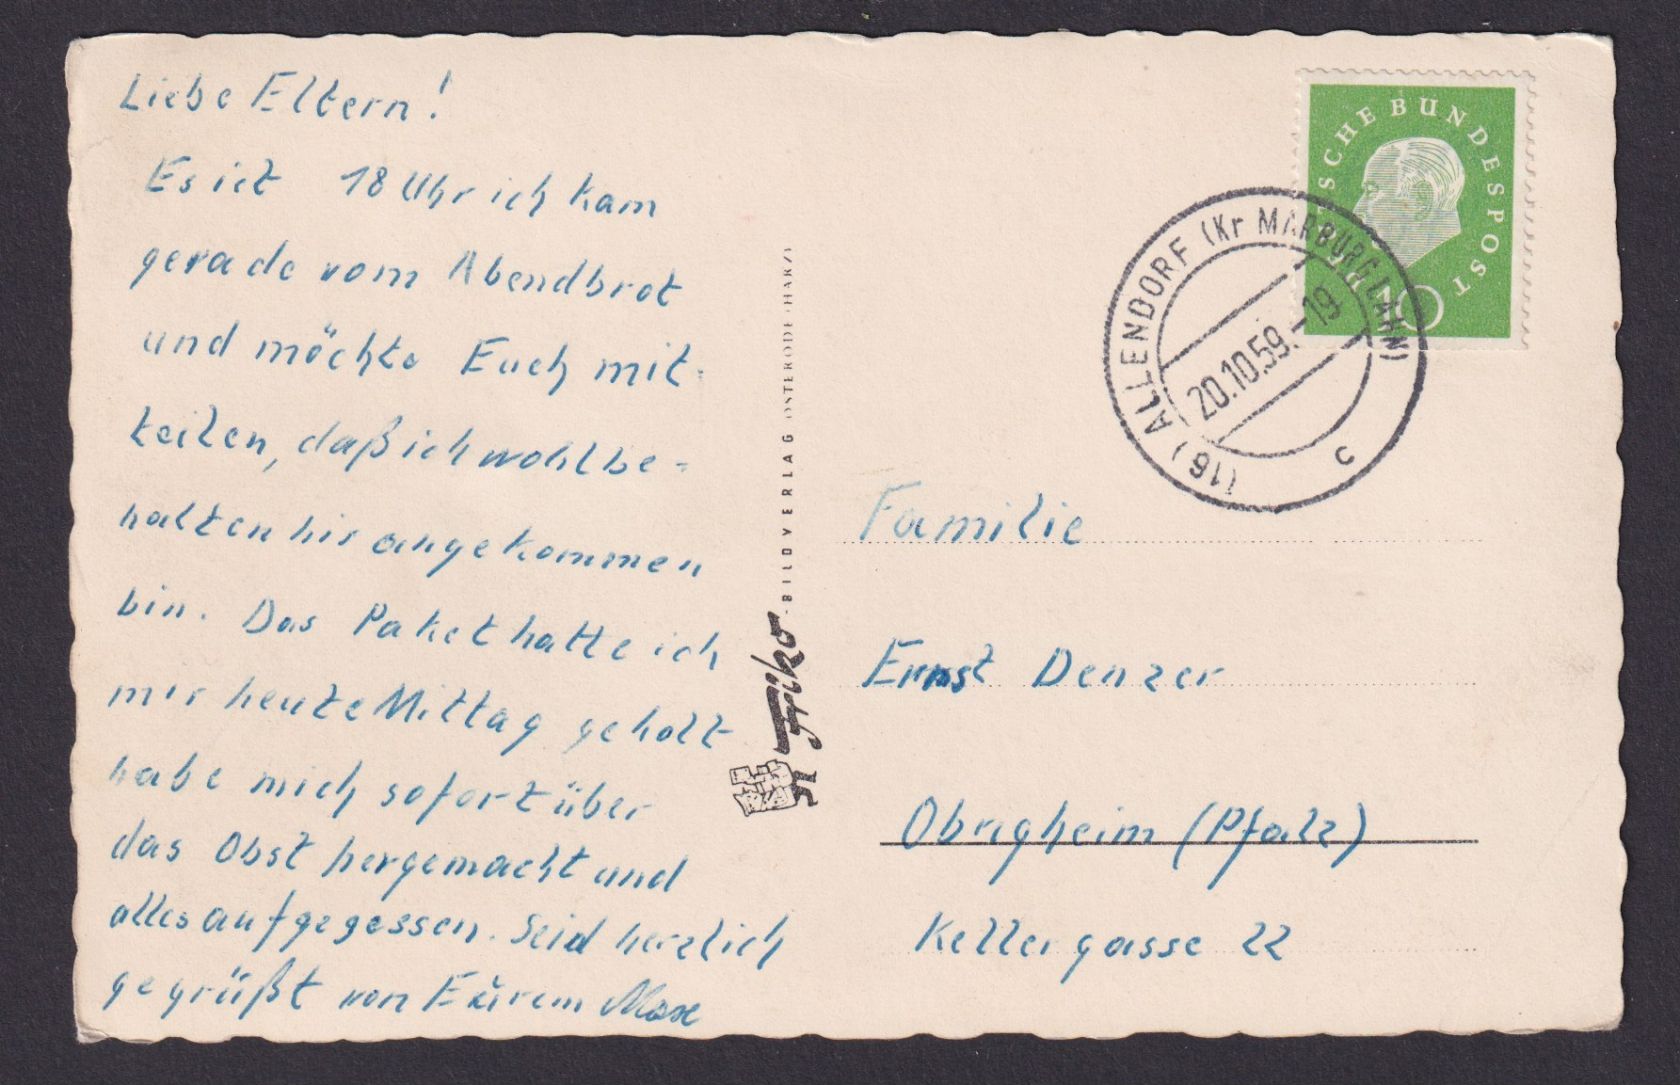 Liebe Eltern!
Es ist 18 Uhr ich kam
gerade vom Abendbrot
und möchte Euch mit-
teilen, daß ich wohlbe-
halten hir angekommen
bin. Das Paket hatte ich
mir heute Mittag geholt
habe mich sofort über
das Obst hergemacht und
alles aufgegessen. Seid herzlich
gegrüßt von Eurem Max
Friko
BILDVERLAG OSTERODE (HARZ)
DEUTSCHE BUNDESPOST
(16) ALLENDORF (Kr MARBURG LAHN)
20.10.59.-19
c
Familie
Ernst Denzer
Obrigheim (Pfalz)
Kellergasse 22